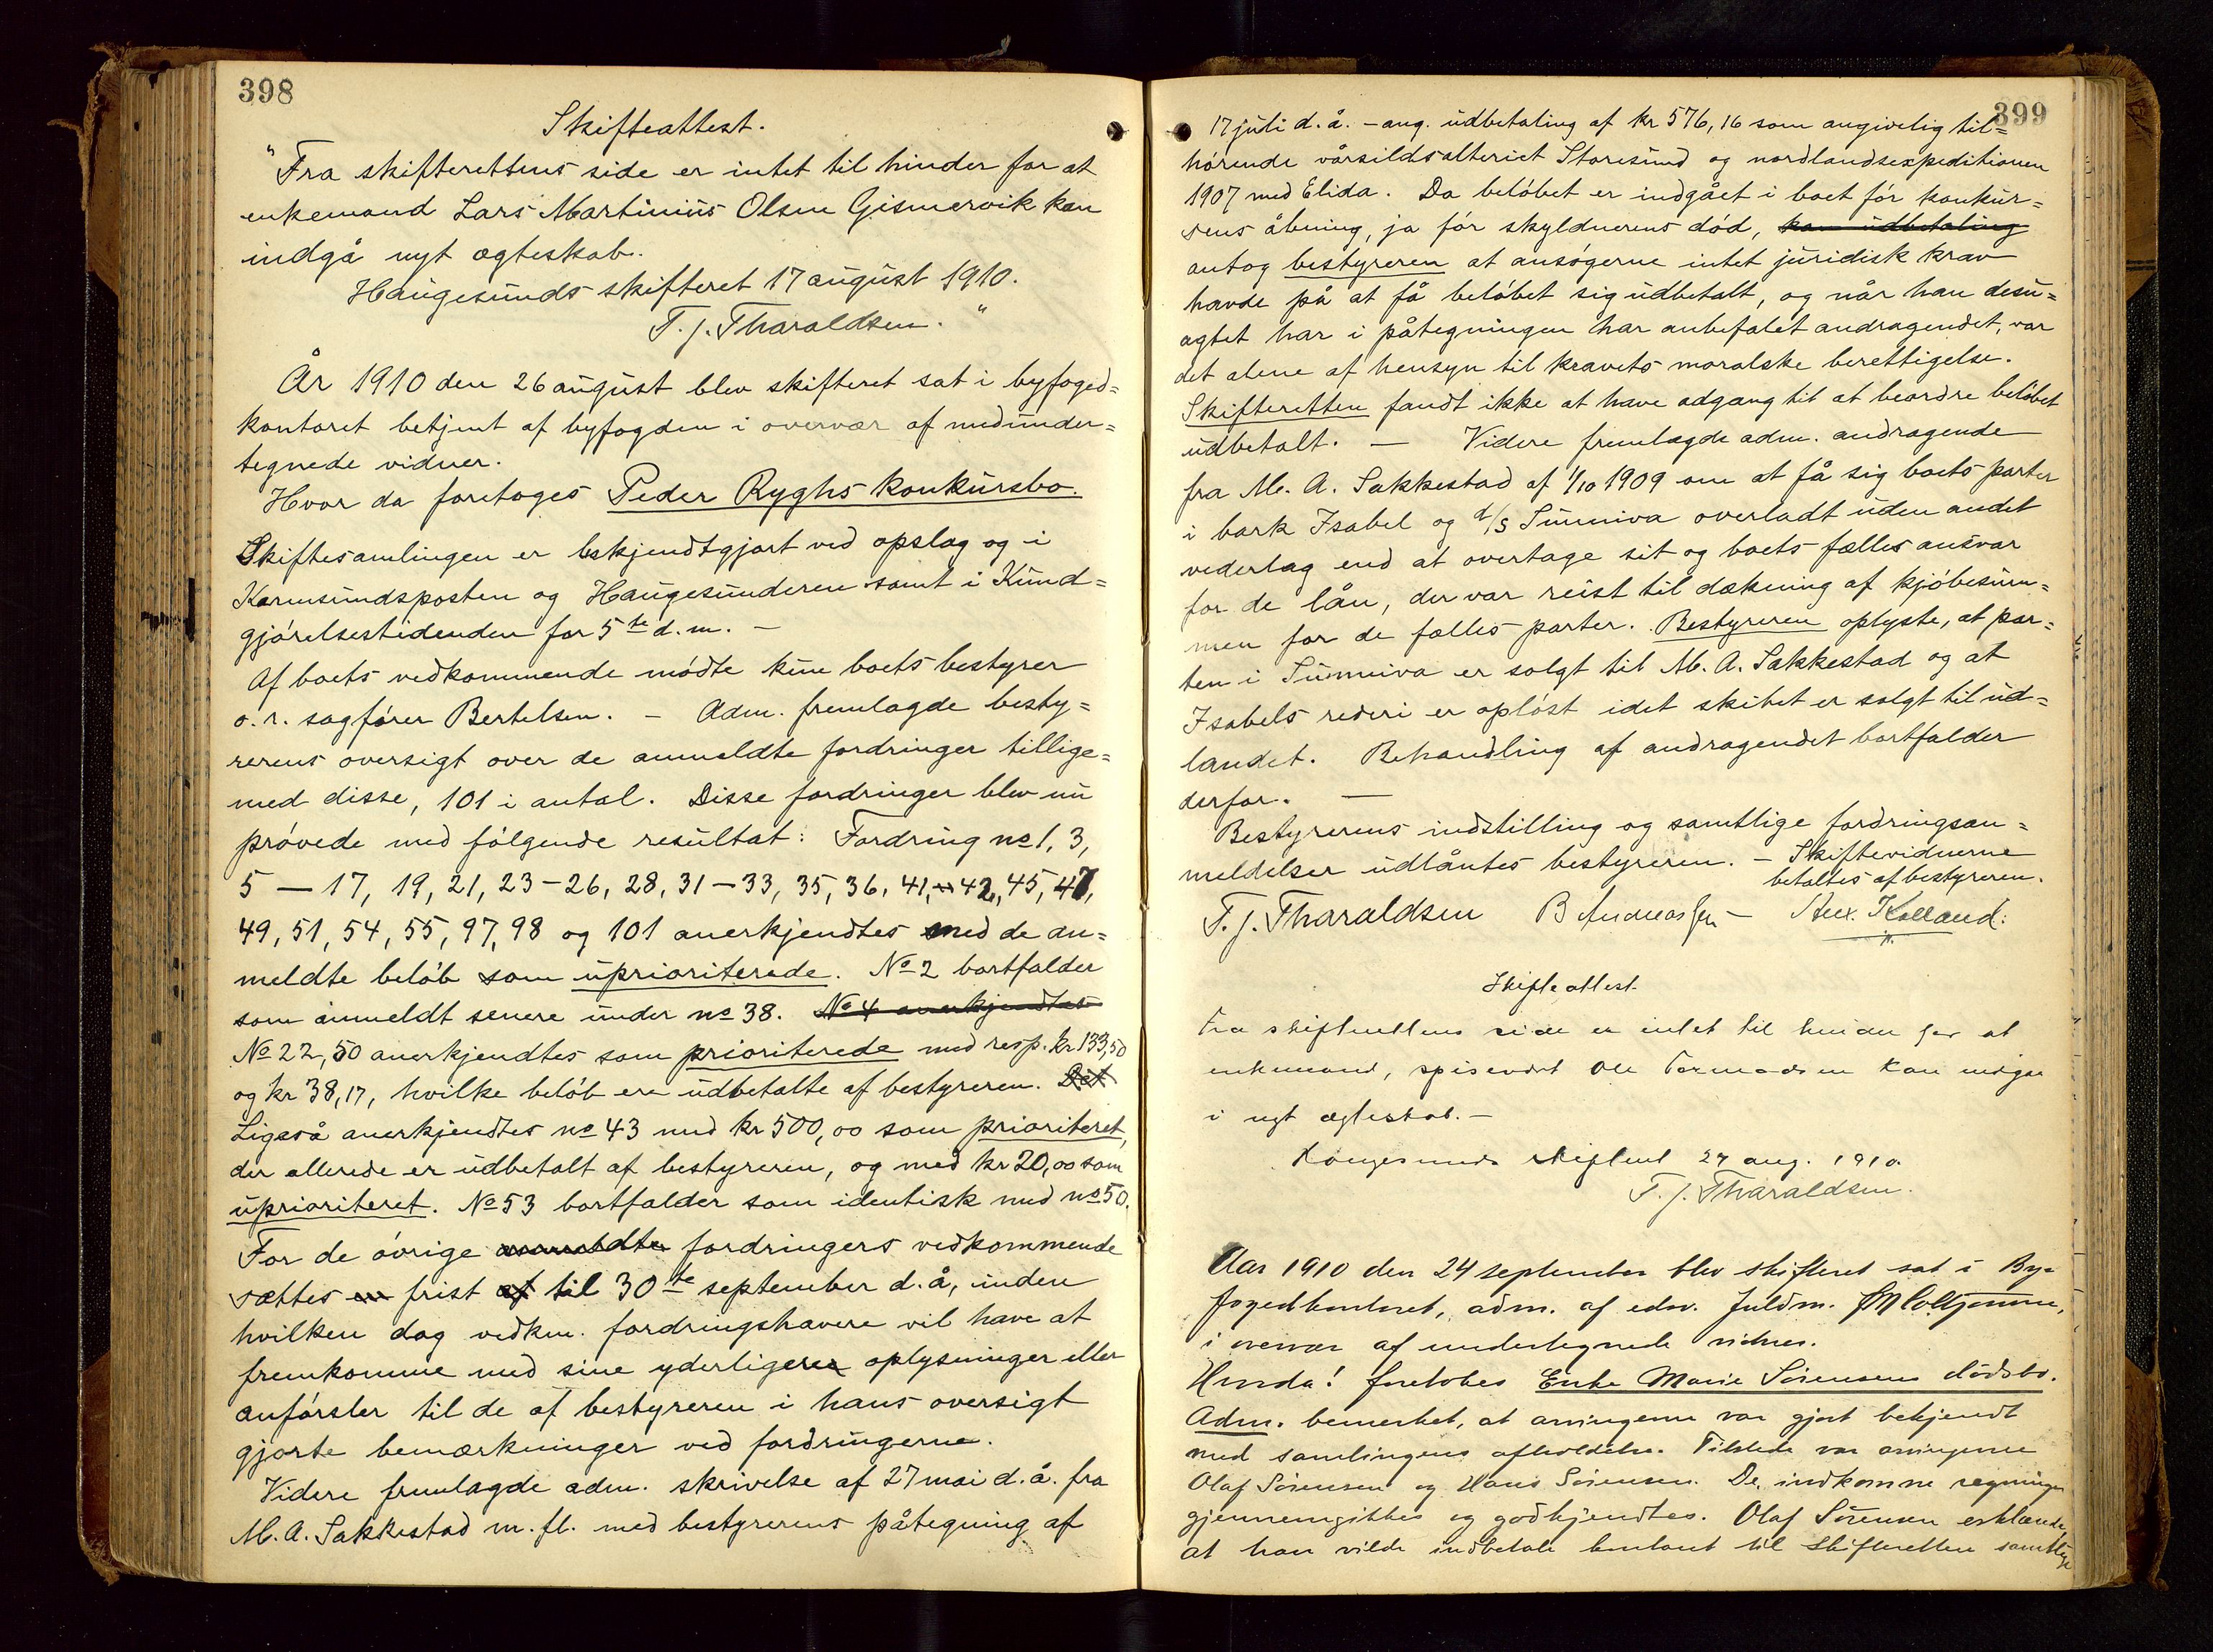 398
Skifteattest.
"Fra skifterettens side er intet til hinder for at
enkemand Lars Martinius Olsen Gismervik kan
indgå nyt ægteskab.
Haugesunds skifteret 17 august 1910.
T. J. Tharaldsen."
År 1910 den 26 august blev skifteret sat i byfoged=
kontoret betjent af byfogden i overvær af medunder=
tegnede vidner.
Hvor da foretoges Peder Ryghs konkursbo.
Skiftesamlingen er bekjendtgjort ved opslag og i
Karmsundsposten og Haugesunderen samt i Kund=
gjørelsestidenden for 5te d.m. –
Af boets vedkommende mødte kun boets bestyrer
o.r. sagfører Bertelsen. – Adm. fremlagde besty=
rerens oversigt over de anmeldte fordringer tillige=
med disse, 101 i antal. Disse fordringer blev nu
prøvede med følgende resultat: Fordring no 1, 3,
5 – 17, 19, 21, 23–26, 28, 31–33, 35, 36, 41, 42, 45, 47,
49, 51, 54, 55, 97, 98 og 101 anerkjendtes med de an=
meldte beløb som uprioriterede. No 2 bortfalder
som anmeldt senere under no 38. No 4 anerkjendtes
No 22, 50 anerkjendtes som prioriterede med resp. kr 133,50
og kr 38,17, hvilke beløb ere udbetalte af bestyreren. Det
Ligeså anerkjendtes no 43 med kr 500,00 som prioriteret,
der allerede er udbetalt af bestyreren, og med kr 20,00 som
uprioriteret. No 53 bortfalder som identisk med no 50.
For de øvrige anmeldte fordringers vedkommende
sættes en frist af til 30te september d.å, inden
hvilken dag vedkm. fordringshavere vil have at
fremkomme med sine yderligere oplysninger eller
anførsler til de af bestyreren i hans oversigt
gjorte bemærkninger ved fordringerne.
Videre fremlagde adm. skrivelse af 27 mai d.å. fra
M. A. Sakkestad m.fl. med bestyrerens påtegning af
399
17 juli d.å. – ang. udbetaling af kr 576,16 som angivelig til=
hørende vårsildsalteriet Storesund og nordlandsexpeditionen
1907 med Elida. Da beløbet er indgået i boet før konkur=
sens åbning, ja før skyldnerens død, kan udbetaling
antog bestyreren at ansøgerne intet juridisk krav
havde på at få beløbet sig udbetalt, og når han desu=
agtet har i påtegningen har anbefalet andragendet, var
det alene af hensyn til kravets moralske berettigelse.
Skifteretten fandt ikke at have adgang til at beordre beløbet
udbetalt. – Videre fremlagde adm. andragende
fra M. A. Sakkestad af 1/10 1909 om at få sig boets parter
i bark Isabel og d/s Sunniva overladt uden andet
vederlag end at overtage sit og boets fælles ansvar
for de lån, der var reist til dækning af kjøbesum=
men for de fælles parter. Bestyreren oplyste, at par=
ten i Sunniva er solgt til M. A. Sakkestad og at
Isabels rederi er opløst idet skibet er solgt til ud=
landet. Behandling af andragendet bortfalder
derfor. –
Bestyrerens indstilling og samtlige fordringsan=
meldelser udlåntes bestyreren. – Skiftevidnerne
betaltes af bestyreren.
T. J. Tharaldsen B Andreassen – Kolland.
Skifteattest.
Fra skifterettens side er intet til hinder for at
enkemand, spisevert Ole Tormodsen kan indgaa
i nyt ægteskab. –
Haugesunds skifteret 27 aug. 1910.
T. J. Tharaldsen.
Aar 1910 den 24 september blev skifteret sat i By=
fogedkontoret, adm. af edsv. fuldm.
i overvær af undertegnede vidner.
Hvorda! foretoges Enke Marie Sørensens dødsbo.
Adm. bemerket, at arvingerne var gjort bekjendt
med samlingens afholdelse. Tilstede var arvingerne
Olaf Sørensen og Hans Sørensen. De indkomne regninger
gjennemgikkes og godkjendtes. Olaf Sørensen erklærede,
at han vilde indbetale kontant til skifteretten samtlige